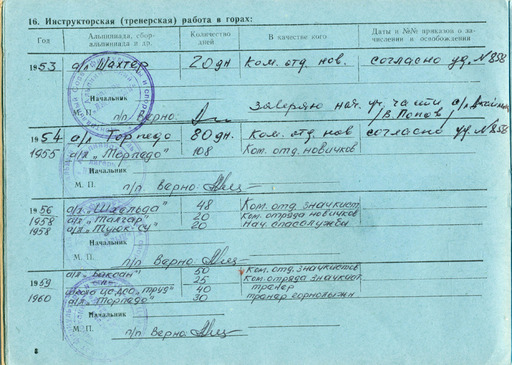 16. Инструкторская (тренерская) работа в горах:
Год
Альплагерь, сбор, альпиниада и др.
Количество дней
В качестве кого
Даты и №№ приказов о зачислении и освобождении
1953 а/л Шахтер 20 дн Ком. отд. нов. согласно уд. №858
Начальник
п/п Верно
Заверяю нач. уч. части а/л
/В. Попов/
1954 а/л Торпедо 80 дн. Ком. отд нов согласно уд. №858
1955 а/л „Торпедо" 108 Ком. отд. новичков
Начальник
М. П. п/п Верно:
1956 а/л „Шхельда" 48 Ком. отд. значкист
1958 а/л „Талгар" 20 Ком. отряда новичков
1958 а/л „Туюк-Су" 20 Нач. спасслужбы
Начальник
М. П. п/п Верно:
1959 а/л „Баксан" 50 Ком. отд. значкистов
25 Ком. отряда значкист
ДСО „Труд" 40 тренер
1960 а/л „Торпедо" 30 тренер горнолыжн
Начальник
М. П. п/п Верно:
8